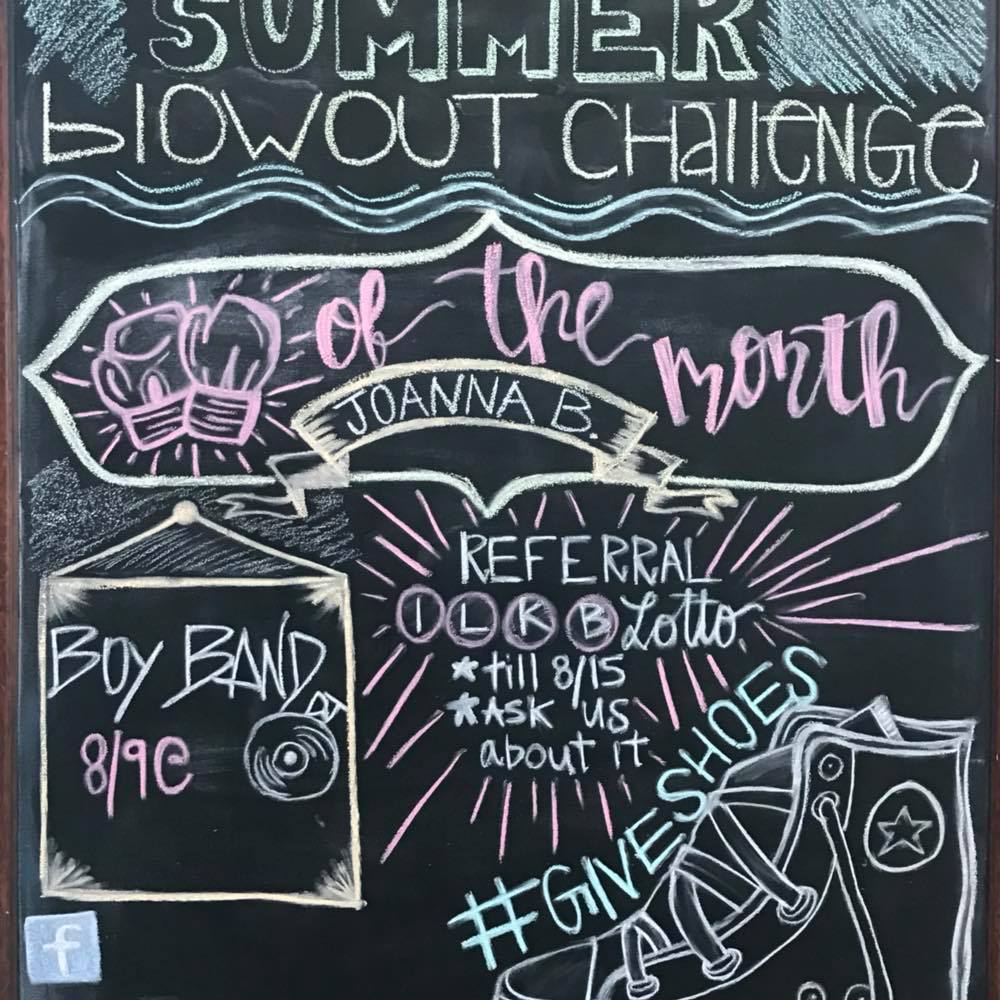 SUMMER
blOWOUT CHallENGe
of the month
JOANNA B.
REFERRAL
ILKB Lotto
*till 8/15
*ASK US
about it
BOY BAND
DJ
8/9@
#GIVESHOES
f